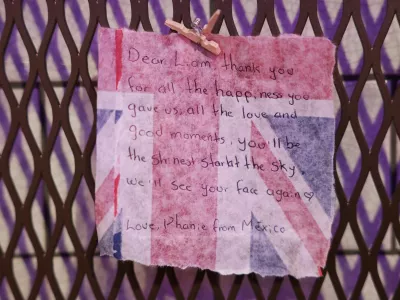 Dear Liam, thank you
for all the happiness you
gave us, all the love and
good moments, you'll be
the shinest star bt the sky,
we'll see your face again♡
Love, Phanie from México